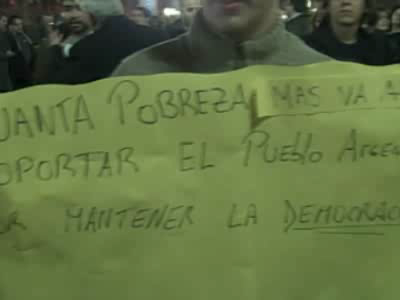 UANTA POBREZA MAS VA A
OPORTAR EL PUEBLO ARGE
R MANTENER LA DEMOCRAC